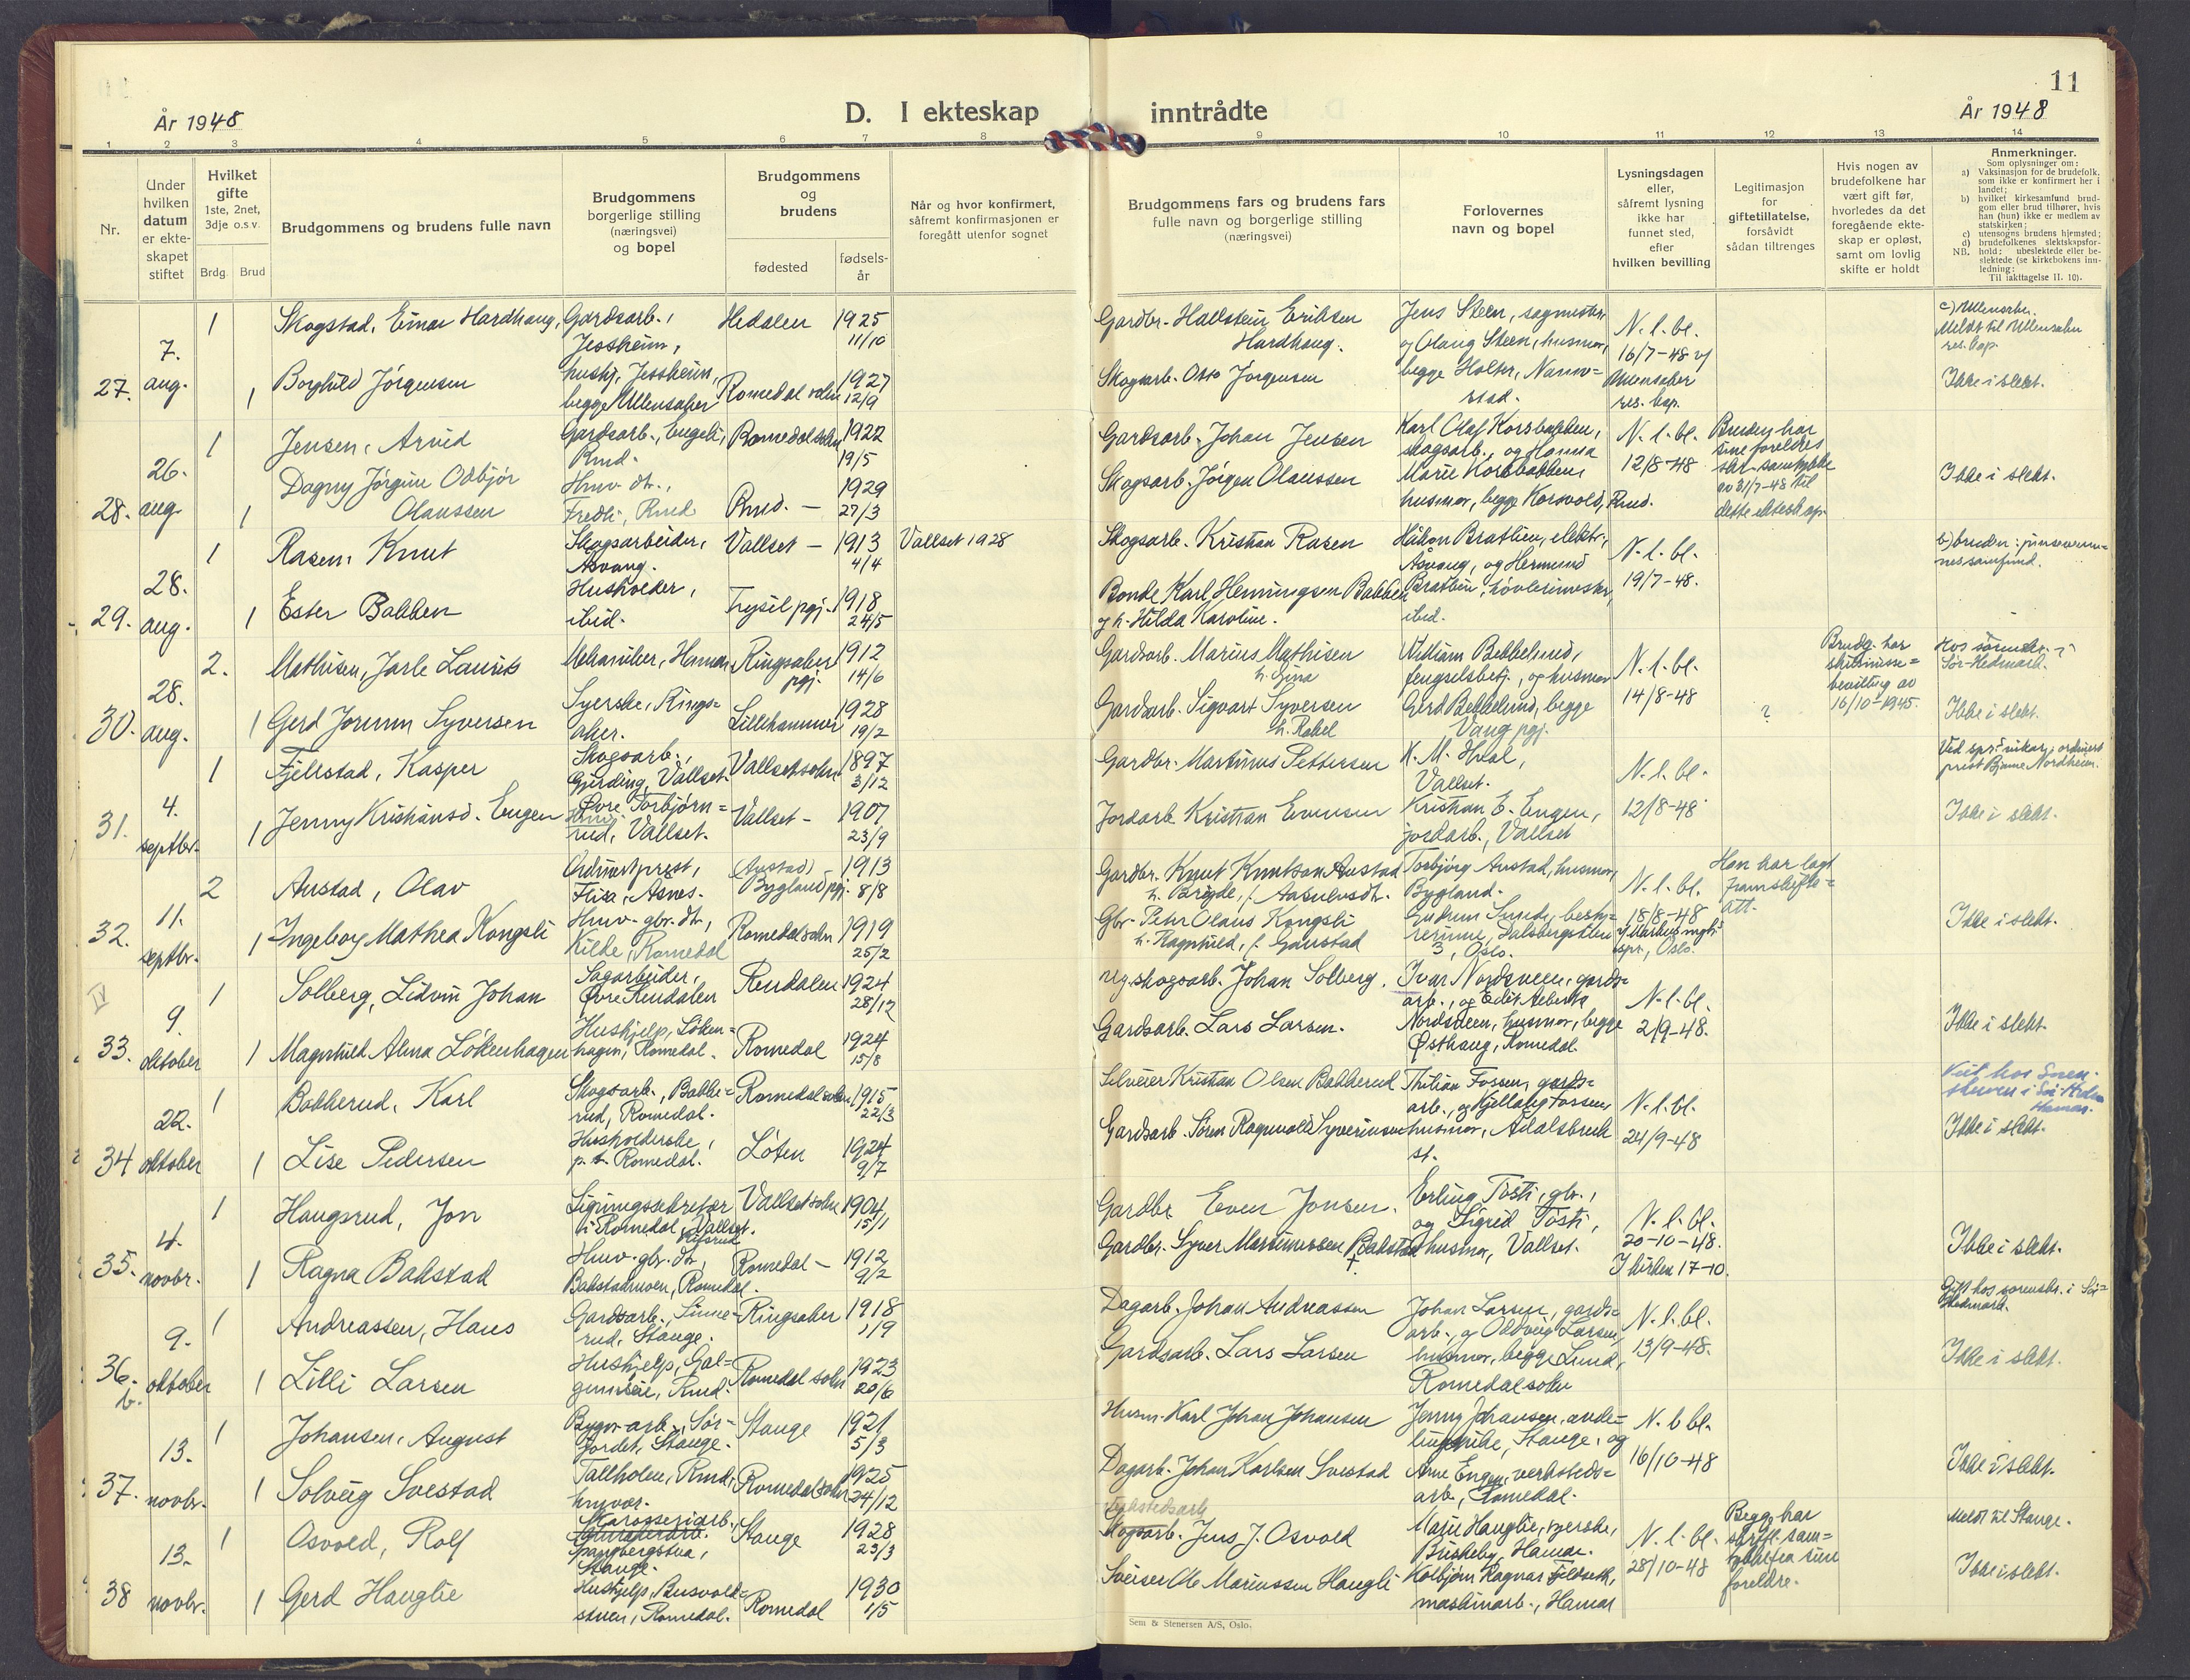 11
År 1948
D. I ekteskap inntrådte
År 1948
1 2 3 4 5 6 7 8 9 10 11 12 13 14
Nr.
Under
hvilken
datum
er ekte-
skapet
stiftet
Hvilket
gifte
1ste, 2net,
3dje o.s.v.
Brdg. Brud
Brudgommens og brudens fulle navn
Brudgommens
borgerlige stilling
(næringsvei)
og bopel
Brudgommens
og
brudens
fødested
fødsels-
år
Når og hvor konfirmert,
såfremt konfirmasjonen er
foregått utenfor sognet
Brudgommens fars og brudens fars
fulle navn og borgerlige stilling
(næringsvei)
Forlovernes
navn og bopel
Lysningsdagen
eller,
såfremt lysning
ikke har
funnet sted,
efter
hvilken bevilling
Legitimasjon
for
giftetillatelse,
forsåvidt
sådan tiltrenges
Hvis nogen av
brudefolkene har
vært gift før,
hvorledes da det
foregående ekte-
skap er opløst,
samt om lovlig
skifte er holdt
Anmerkninger.
Som oplysninger om:
a) Vaksinasjon for de brudefolk,
som ikke er konfirmert her i
landet;
b) hvilket kirkesamfund brud-
gom eller brud tilhører, hvis
han (hun) ikke er medlem av
statskirken;
c) utensogns brudens hjemsted;
d) brudefolkenes slektskapsfor-
NB. hold; ubeslektede eller be-
slektede (se kirkebokens inn-
ledning:
Til iakttagelse II. 10).
27. 7. aug.
1 Skogstad, Einar Hardhaug, Gardsarb., Jessheim, Hedalen 1925 11/10
1 Borghild Jörgensen hushj. Jessheim, begge Ullensaker Romedal sokn 1927 12/9
Gardbr. Hallstein Eriksen Hardhaug.
Skogsarb. Otto Jörgensen
Jens Steen, sagmester,
og Olaug Steen, husmor,
begge Holter, Nanne-
stad.
N. l. bl.
16/7-48 v/
Ullensaker
res. kap.
c) Ullensaker.
Meldt til Ullensaker
res. kap.
Ikke i slekt.
28. 26. aug.
1 Jensen, Arvid Gardsarb., Engeli, Rmd. Romedal sokn 1922 19/5
1 Dagny Jörgine Odbjör Olaussen Huv. dtr., Fredli, Rmd Rmd. - 1929 27/3
Gardsarb. Johan Jensen
Skogsarb. Jörgen Olaussen
Karl Olaf Korsbakken,
skogsarb., og Hanna
Marie Korsbakken,
husmor, begge Korsvold, Rmd.
N. l. bl.
12/8-48
Bruden har
sine foreldres
skr. samtykke
av 31/7-48 til
dette ekteskap.
Ikke i slekt.
29. 28. aug.
1 Rasen, Knut Skogsarbeider, Åsvang. Vallset - 1913 4/4 Vallset 1928
1 Ester Bakken Husholder, ibid. Trysil pgj. 1918 24/5
Skogsarb. Kristian Rasen
Bonde Karl Henningsen Bakken
og h. Hilda Karoline.
Håkon Bratlien, elektr.,
Åsvang, og Hermund
Bratlien, høvlerimester,
ibid.
N. l. bl.
19/7-48.
b) bruden: pinseven-
nes samfund.
30. 28. aug.
2. Mathisen, Jarle Laurits Mekaniker, Hamar Ringsaker pgj. 1912 14/6
1 Gerd Jorunn Syversen Syerske, Rings-
aker. Lillehammer 1928 19/2
Gardsarb. Marius Mathisen
h. Gina
Gardsarb. Sigvart Syversen
h. Rakel
William Bekkelund,
fengselsbetj., og husmor
Gerd Bekkelund, begge
Vang pgj.
N. l. bl.
14/8-48
?
Brudg. har
skilsmisse-
bevilling av
16/10-1945.
Hos sorenskr. i
Sør-Hedmark.
Ikke i slekt.
31. 4. septbr.
1 Fjellstad, Kasper Skogsarb., Gjerding, Vallset. Vallset sokn 1897 3/12
1 Jenny Kristiansd. Engen Øvre Torbjørn-
rud, Vallset. Vallset - 1907 23/9
Gardbr. Martinus Pettersen
Jordarb. Kristian Evensen
K. M. Hval,
Vallset.
Kristian E. Engen,
jordarb., Vallset
N. l. bl.
12/8-48
Ved spr. vikar, ordinert
prest Bjarne Nordheim.
Ikke i slekt.
32. 11. septbr.
2 Austad, Olav Ordinert prest, Flisa, Åsnes. (Austad) Bygland pgj. 1913 8/8
1 Ingeborg Mathea Kongsli Huv. gbr. dtr., Kilde, Romedal Romedal sokn 1919 25/2
Gardbr. Knut Knutson Austad
h. Birgde, f. Aasulvsdtr.
Gbr. Peter Olaus Kongsli
h. Ragnhild, f. Gaustad
Torbjörg Austad, husmor,
Bygland.
Gudrun Sunde, besty-
rerinne, Dalsbergstien
3, Oslo.
N. l. bl.
18/8-48
v/ Markus mgh.
spr., Oslo.
Han har lagt
fram skifte-
att.
Ikke i slekt.
IV
33. 9. oktober
1 Solberg, Lidvin Johan Sagarbeider, Øvre Rendalen Rendalen 1924 28/12
1 Magnhild Alma Lökenhagen Hushjelp, Löken-
hagen, Romedal. Romedal 1924 15/8
skogsarb. Johan Solberg.
Gardsarb. Lars Larsen.
Ivar Nordsveen, gards-
arb., og Edit Alberta
Nordsveen, husmor, begge
Østhaug, Romedal.
N. l. bl.
2/9-48.
Ikke i slekt.
34 22. oktober
1 Bakkerud, Karl Skogsarb., Bakke-
rud, Romedal. Romedal sokn 1915 22/3
1 Lise Pedersen Husholderske, p.t. Romedal. Löten 1924 9/7
Kristian Olsen Bakkerud
Gardsarb. Sören Ragnvald Syverinsen
Fossen, gards-
arb., og Kjellaug Fossen,
husmor, Ådalsbruk
st.
N. l. bl.
24/9-48
Hamar.
Ikke i slekt.
35. 4. novbr.
1 Haugsrud, Jon Ligningssekretær
i Romedal, Vallset. Vallset sokn 1904 15/1
1 Ragna Bakstad Huv. gbr. dtr., Bakstadmoen, Romedal. Romedal - 1912 9/2
Gardbr. Even Jonsen.
Gardbr. Syver Martinussen Bakstad †
Erling Tosti, gbr.,
og Sigrid Tosti,
husmor, Vallset.
N. l. bl.
20-10-48.
I kirken 17-10.
Ikke i slekt.
36. b. 9. oktober
1 Andreassen, Hans Gardsarb., Linne-
rud, Stange. Ringsaker 1918 1/9
1 Lilli Larsen Hushjelp, Rmd. Romedal sokn 1923 20/6
Dagarb. Johan Andreassen
Gardsarb. Lars Larsen
Johan Larsen, gards-
arb., og Oddveig Larsen,
husmor, begge Lund,
Romedal sokn
N. l. bl.
13/9-48.
Gift hos sorenskr. i Sør-
Hedmark.
Ikke i slekt.
37. 13. novbr.
1 Johansen, August Bygn. arb., Sør-
jordet, Stange. Stange 1921 5/3
1 Solveig Svestad Tallholen, Rmd., hmvær. Romedal sokn 1925 24/12
Husm. Karl Johan Johansen
Dagarb. Johan Karlsen Svestad
Jenny Johansen,
Stange, og
Arne Engen, verksteds-
arb., Romedal.
N. l. bl.
16/10-48
Ikke i slekt.
38 13. novbr.
1 Osvold, Rolf Karosseriarb., Spangbergstua, Stange. Stange 1928 23/3
1 Gerd Hauglie Hushjelp, Busvold-
stuen, Romedal. Romedal 1930 1/5
Verkstedsarb
Skogsarb. Jens J. Osvold
Sveiser Ole Mariussen Haugli
Marie Hauglie, syerske,
Briskeby, Hamar.
Kolbjörn Ragnar Fldseth,
maskinarb., Hamar
N. l. bl.
28/10-48
Begge har
skriftl. sam-
tykke fra sine
foreldre.
Meldt til Stange.
Ikke i slekt.
Sem & Stenersen A/S, Oslo.